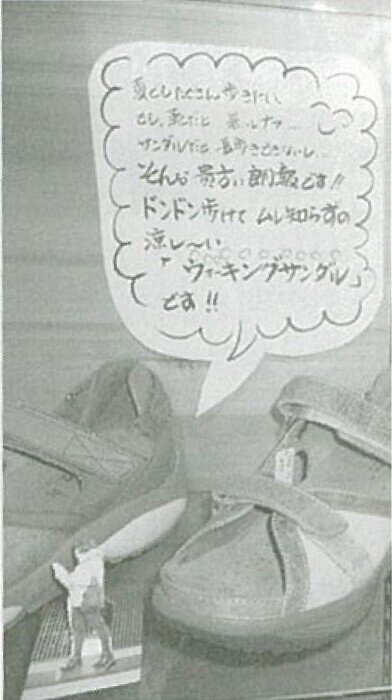 夏こしたくさん歩きたい
でも、靴だと 暑いしナァ…
サンダルだと 長歩きできないし…
そんな 貴方に朗報です!!
ドンドン歩けて ムレ知らずの
涼し〜い
「ウォーキングサンダル」
です!!